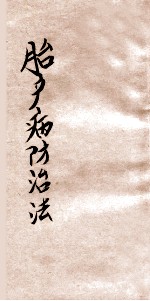 胎产病防治法